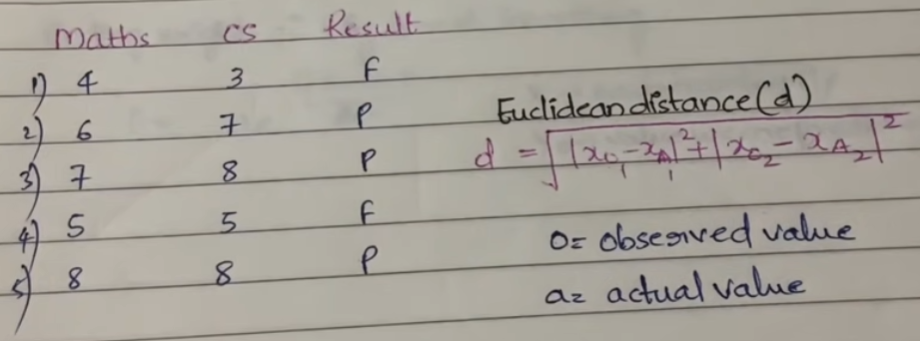 Maths CS Result
1) 4 3 F
2) 6 7 P
3) 7 8 P
4) 5 5 F
5) 8 8 P
Euclidean distance (d)
d = √|x₀₁ - x_A₁|² + |x₀₂ - x_A₂|²
o= observed value
a= actual value